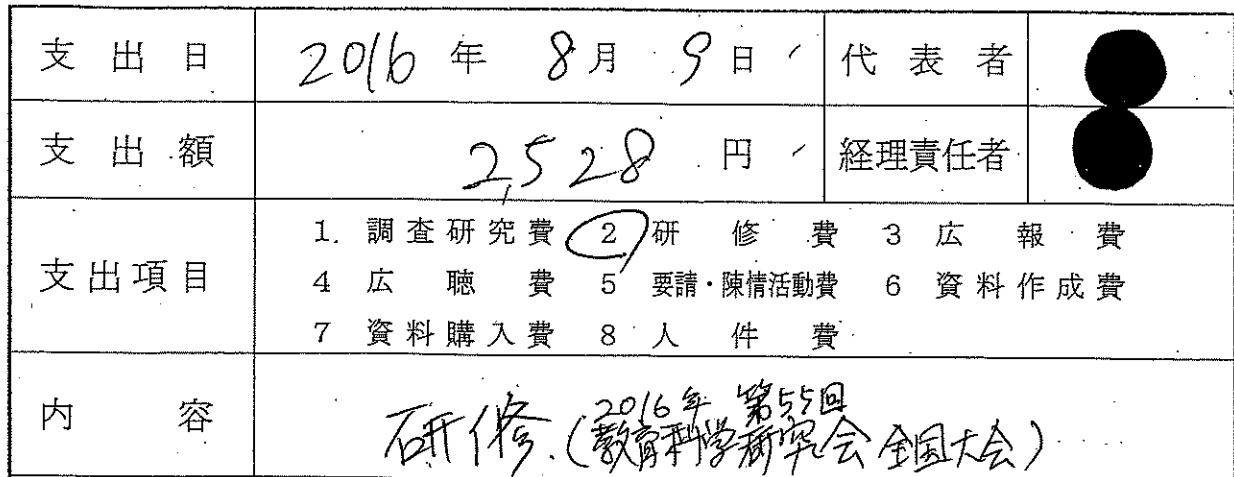 支出日 2016年 8月 9日 代表者
支出額 2,528 円 経理責任者
支出項目
1. 調査研究費 2 研修費 3 広報費
4 広聴費 5 要請・陳情活動費 6 資料作成費
7 資料購入費 8 人件費
内容
2016年 第55回
研修.(教育科学研究会 全国大会)